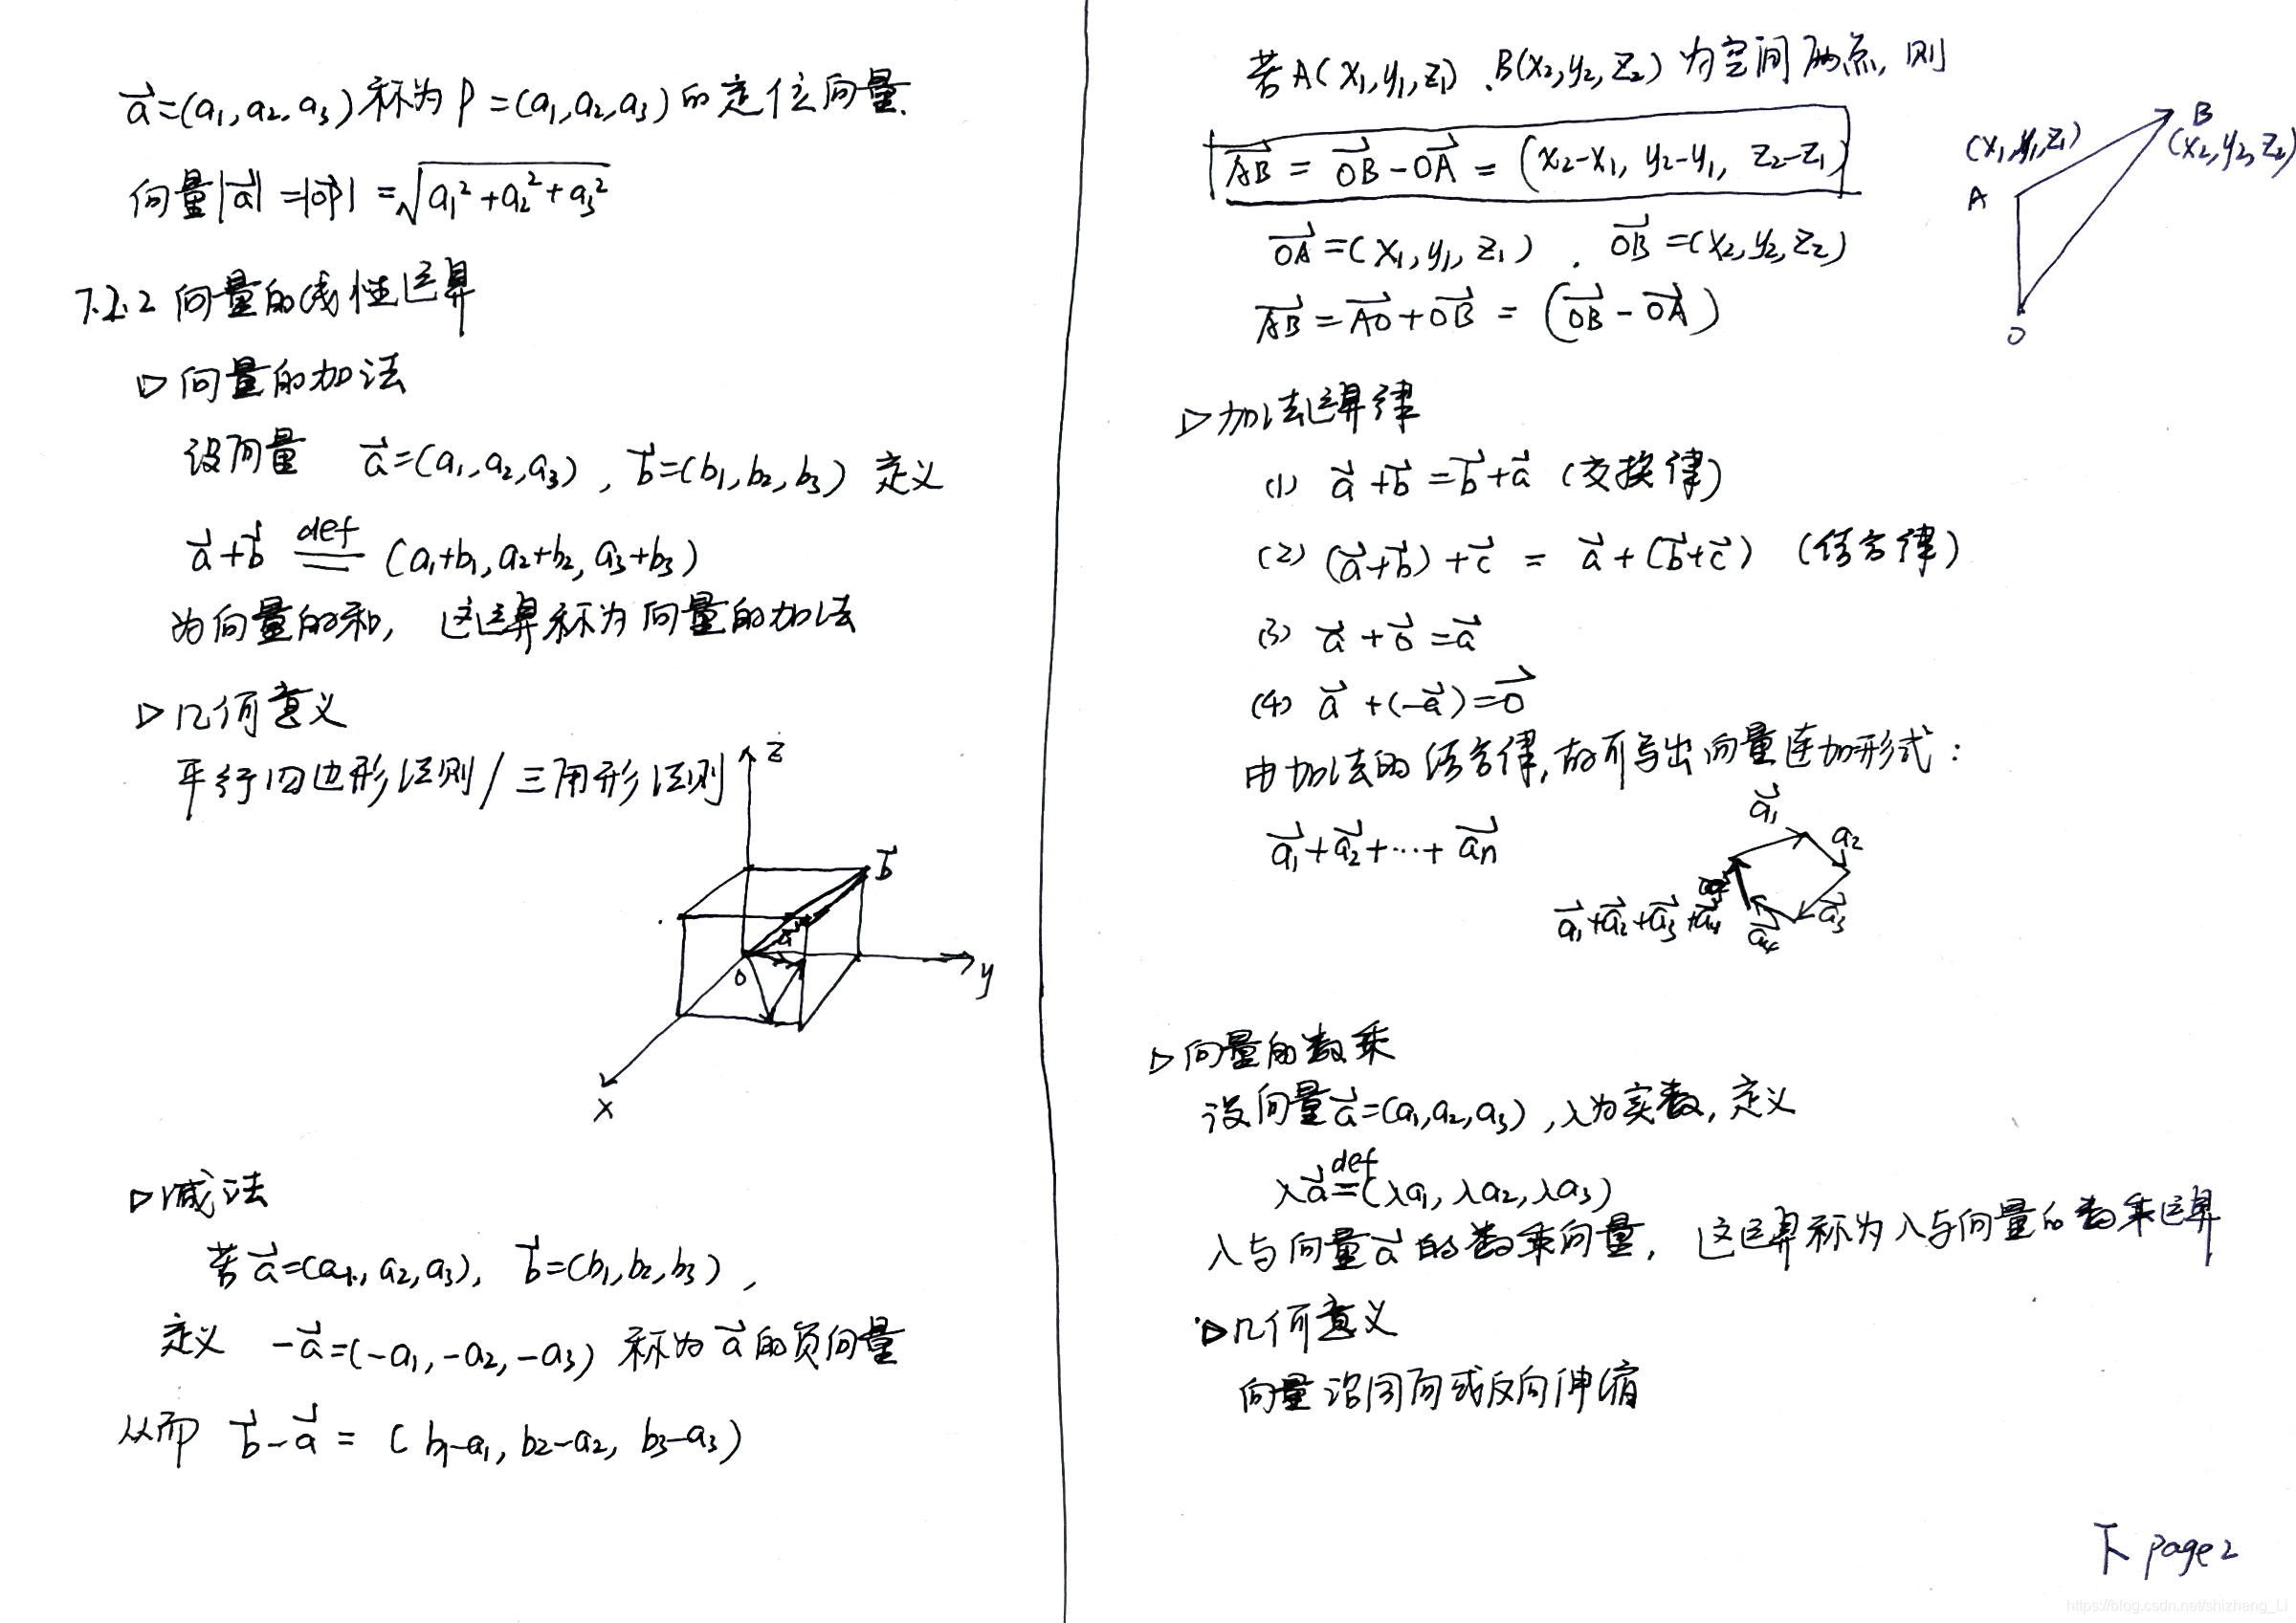 a⃗=(a₁,a₂,a₃)称为P=(a₁,a₂,a₃)的定位向量.
向量|a⃗|=|OP⃗|=√(a₁²+a₂²+a₃²)
7.2.2 向量的线性运算
▷向量的加法
设向量 a⃗=(a₁,a₂,a₃), b⃗=(b₁,b₂,b₃) 定义
a⃗+b⃗ def= (a₁+b₁,a₂+b₂,a₃+b₃)
为向量的和, 这运算称为向量的加法
▷几何意义
平行四边形法则/三角形法则
z
b⃗
a⃗
O
y
x
▷减法
若a⃗=(a₁,a₂,a₃), b⃗=(b₁,b₂,b₃),
定义 -a⃗=(-a₁,-a₂,-a₃) 称为a⃗的负向量
从而 b⃗-a⃗ = (b₁-a₁, b₂-a₂, b₃-a₃)
若A(x₁,y₁,z₁).B(x₂,y₂,z₂)为空间两点,则
AB⃗ = OB⃗-OA⃗ = (x₂-x₁, y₂-y₁, z₂-z₁)
OA⃗=(x₁,y₁,z₁). OB⃗=(x₂,y₂,z₂)
AB⃗=AO⃗+OB⃗ = (OB⃗-OA⃗)
B
(x₁,y₁,z₁)
(x₂,y₂,z₂)
A
O
▷加法运算律
(1) a⃗+b⃗=b⃗+a⃗ (交换律)
(2) (a⃗+b⃗)+c⃗ = a⃗+(b⃗+c⃗) (结合律)
(3) a⃗+0⃗=a⃗
(4) a⃗+(-a⃗)=0⃗
由加法的结合律,故可写出向量连加形式:
a₁⃗+a₂⃗+…+aₙ⃗
a₁⃗
a₂
a₃⃗
a₄⃗
a₁⃗+a₂⃗+a₃⃗+a₄⃗
▷向量的数乘
设向量a⃗=(a₁,a₂,a₃),λ为实数,定义
λa⃗ def= (λa₁,λa₂,λa₃)
λ与向量a⃗的数乘向量, 这运算称为λ与向量的数乘运算
▷几何意义
向量沿同向或反向伸缩
下 page2
https://blog.csdn.net/shizheng_Li